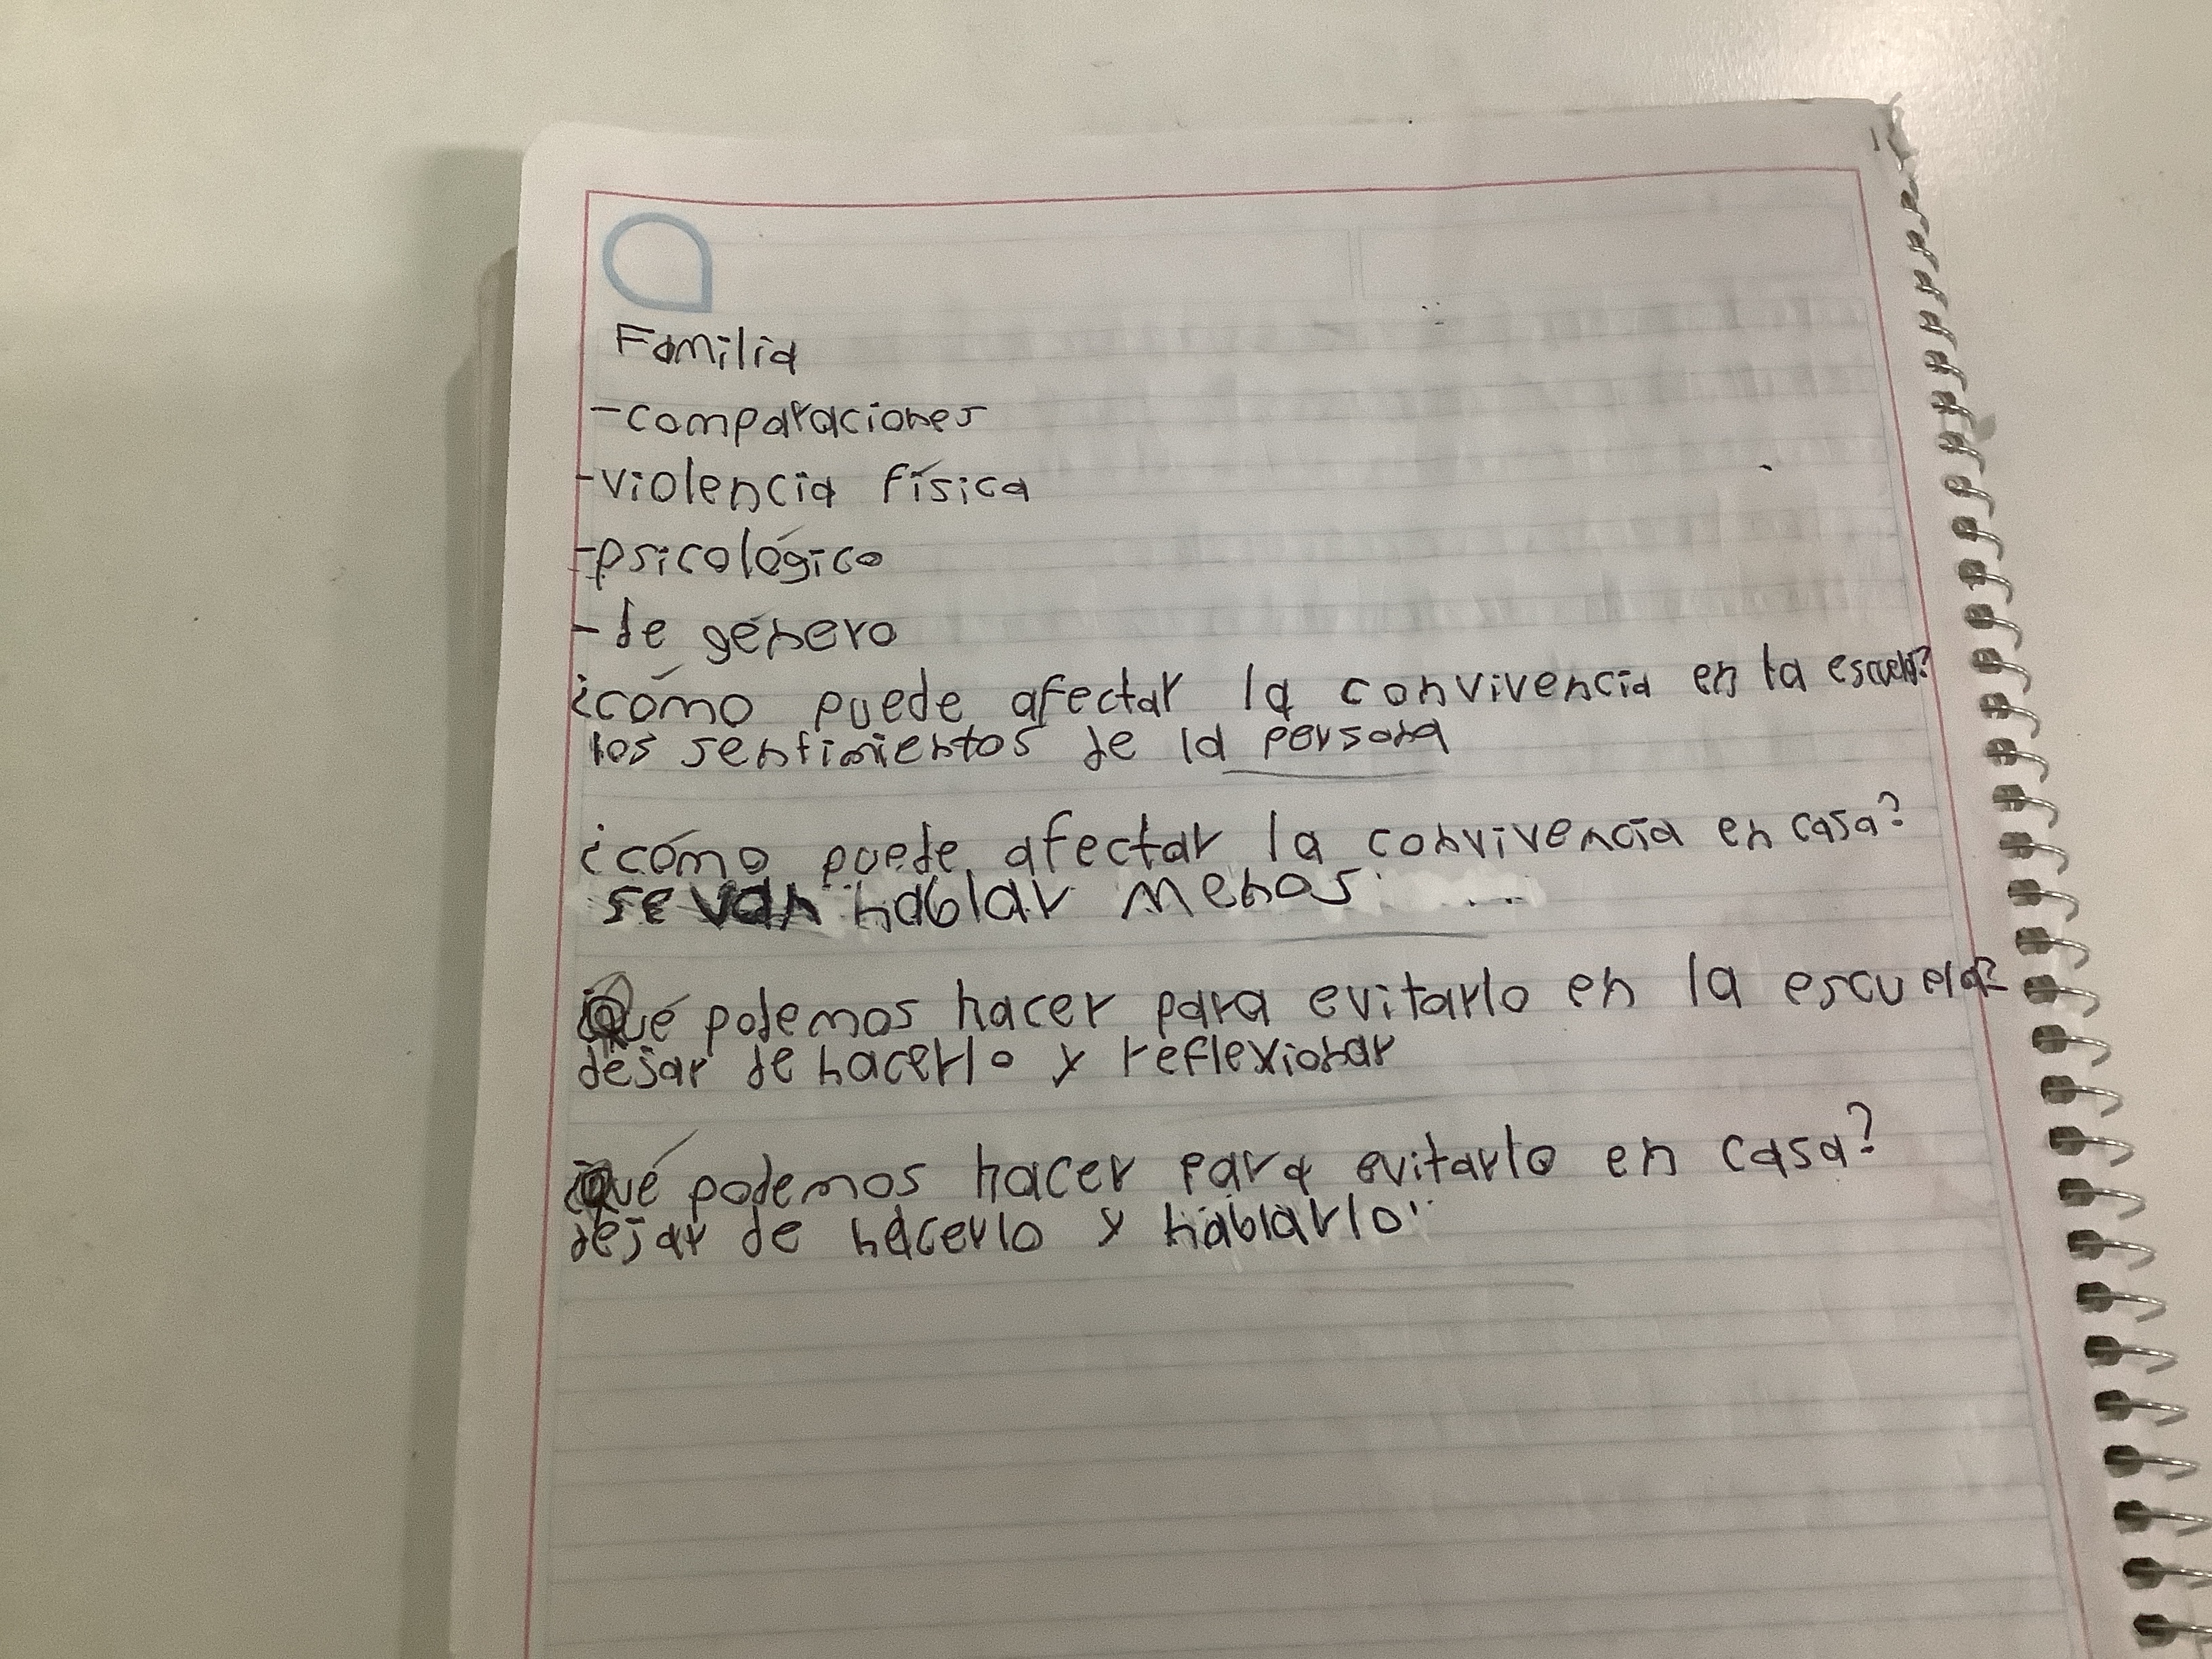 Familia
-comparaciones
-violencia física
-psicológico
-de género
¿cómo puede afectar la convivencia en la escuela?
los sentimientos de la persona
¿cómo puede afectar la convivencia en casa?
se van hablar menos
¿Qué podemos hacer para evitarlo en la escuela?
dejar de hacerlo y reflexionar
¿Qué podemos hacer para evitarlo en casa?
dejar de hacerlo y hablarlo